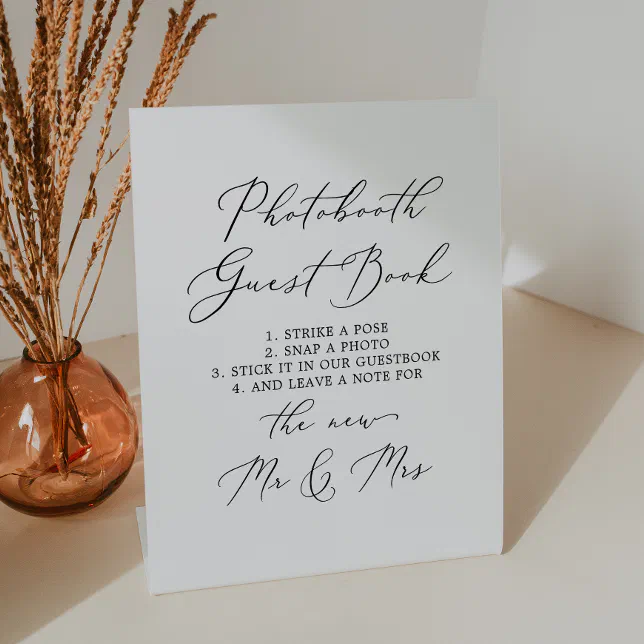 Photobooth
Guest Book
1. STRIKE A POSE
2. SNAP A PHOTO
3. STICK IT IN OUR GUESTBOOK
4. AND LEAVE A NOTE FOR
the new
Mr & Mrs